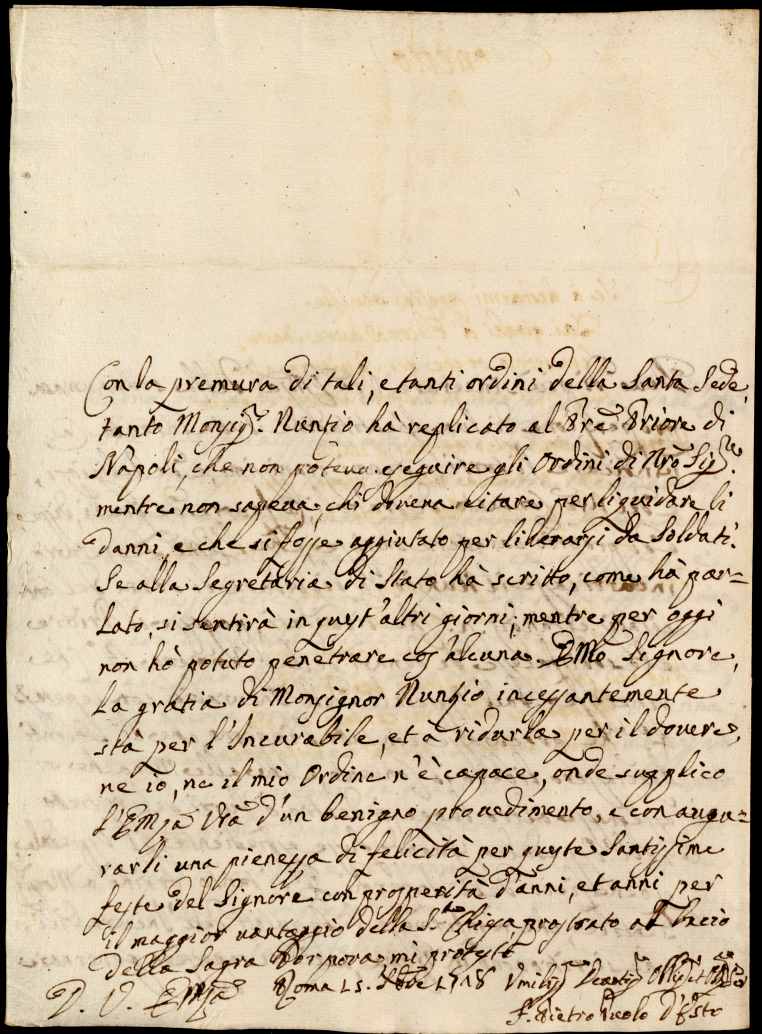 Con la premura di tali, e tanti ordini della Santa Sede,
tanto Monsig.r Nunzio hà replicato al Pre Priore di
Napoli, che non poteva eseguire gli Ordini di Nrõ Sig.re
mentre non sapeva, chi doveva citare per liquidare li
danni, e che si fosse aggiustato per liberarsi da Soldati.
Se alla Segretaria di Stato hà scritto, come hà par=
lato, si sentirà in quest'altri giorni; mentre per oggi
non hò potuto penetrare cos'alcuna. Emõ Signore,
La gratia di Monsignor Nunzio incessantemente
stà per l'Incurabile, et à ridurla per il dovere,
ne iò, ne il mio Ordine n'è capace, onde supplico
l'Emza Vrã d'un benigno provedimento, e con augu=
rarli una pienezza di felicità per queste Santissime
feste del Signore con prosperità d'anni, et anni per
il maggior vantaggio della S.ta Chiesa prostrato al bacio
della Sagra Porpora mi protesto
D. V. Emza Roma 15. Xbre 1718 Umiliss.o Devotiss.o
F. Pietro Paolo d'Esto